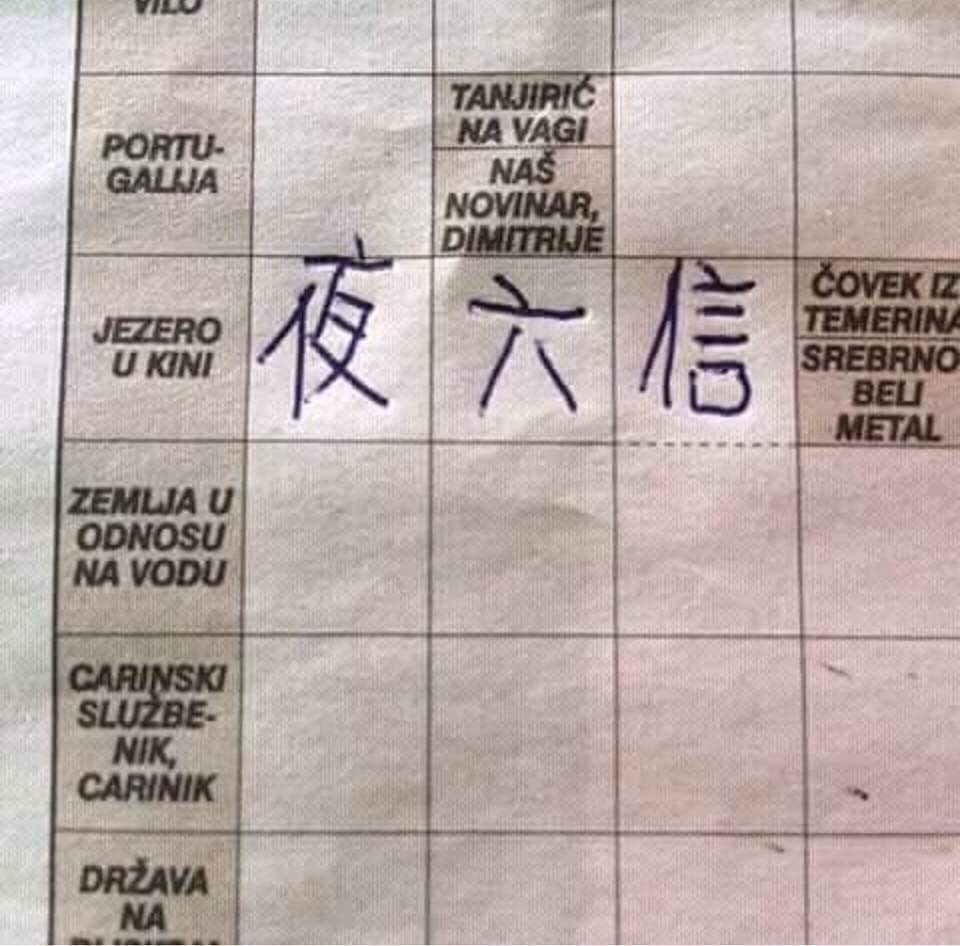 VILO
PORTU-
GALIJA
TANJIRIĆ
NA VAGI
NAŠ
NOVINAR,
DIMITRIJE
JEZERO
U KINI
夜 六 信
ČOVEK IZ
TEMERINA
SREBRNO
BELI
METAL
ZEMLJA U
ODNOSU
NA VODU
CARINSKI
SLUŽBE-
NIK,
CARINIK
DRŽAVA
NA